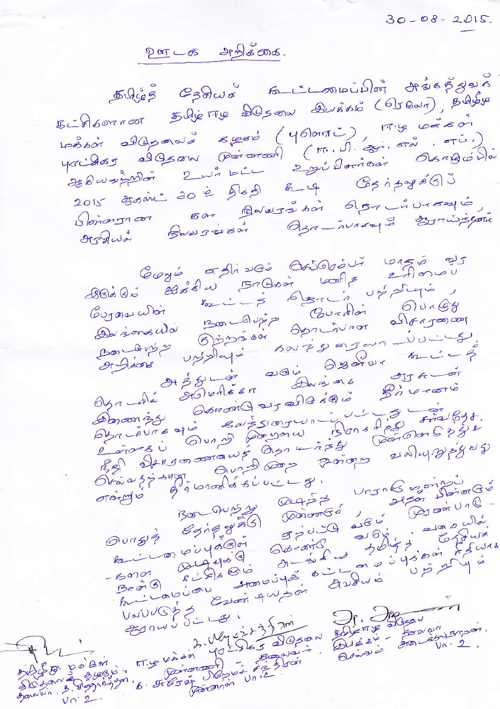 30-08-2015.
ஊடக அறிக்கை.
தமிழ்த் தேசியக் கூட்டமைப்பின் அங்கத்துவக்
கட்சிகளான தமிழ்ஈழ விடுதலை இயக்கம் (ரெலோ), தமிழீழ
மக்கள் விடுதலைக் கழகம் (புளொட்), ஈழ மக்கள்
புரட்சிகர விடுதலை முன்னணி (ஈ.பி.ஆர்.எல்.எப்.)
ஆகியவற்றின் உயர்மட்ட உறுப்பினர்கள் கொழும்பில்
2015 ஆகஸ்ட் 30ம் திகதி கூடி தேர்தலுக்குப்
பின்னரான கள நிலவரங்கள் தொடர்பாகவும்,
அரசியல் நிலவரங்கள் தொடர்பாகவும் ஆராய்ந்தனர்
மேலும் எதிர்வரும் செப்ரெம்பர் மாதம் வர
இருக்கும் ஐக்கிய நாடுகள் மனித உரிமைப்
பேரவையின் கூட்டத் தொடர் பற்றியும்,
இலங்கையில் நடைபெற்ற போரின் பொழுது
நடைபெற்ற குற்றங்கள் தொடர்பான விசாரணை
அறிக்கை பற்றியும் கலந்துரையாடப்பட்டது.
அத்துடன் வரும் ஜெனிவா கூட்டத்
தொடரில் அமெரிக்கா இலங்கை அரசுடன்
இணைந்து கொண்டுவரவிருக்கும் தீர்மானம்
தொடர்பாகவும் கலந்துரையாடப்பட்டதுடன்
உள்ளகப் பொறிமுறையை நிராகரித்து சர்வதேச
நீதி விசாரணையைத் தொடர்ந்து முன்னெடுத்துச்
செல்வதற்கான பொறிமுறை ஒன்றை வலியுறுத்துவது
என்றும் தீர்மானிக்கப்பட்டது.
நடைபெற்று முடிந்த பாராளுமன்றப்
பொதுத் தேர்தலுக்கு முன்னரும், அதன் பின்னரும்
கூட்டமைப்புக்குள் ஏற்பட்டு வரும் முரண்பாடு-
களை முடிவுக்கு கொண்டு வரும் வகையில்
நான்கு கட்சிகளும் அடங்கிய தமிழ்த் தேசியக்
கூட்டமைப்பை அமைப்புக் கட்டமைப்புக்கள் ரீதியாக
பலப்படுத்த வேண்டியதன் அவசியம் பற்றியும்
ஆராயப்பட்டது.
தமிழீழ மக்கள்
விடுதலைக் கழகம்
பா.உ.
ஈழ மக்கள் புரட்சிகர விடுதலை
முன்னணி தலைவர்
க. சுரேஷ் பிறேமச்சந்திரன்
முன்னாள் பா.உ
தமிழீழ விடுதலை
இயக்கம் - தலைவர்
செல்வம் அடைக்கலநாதன்
பா.உ.